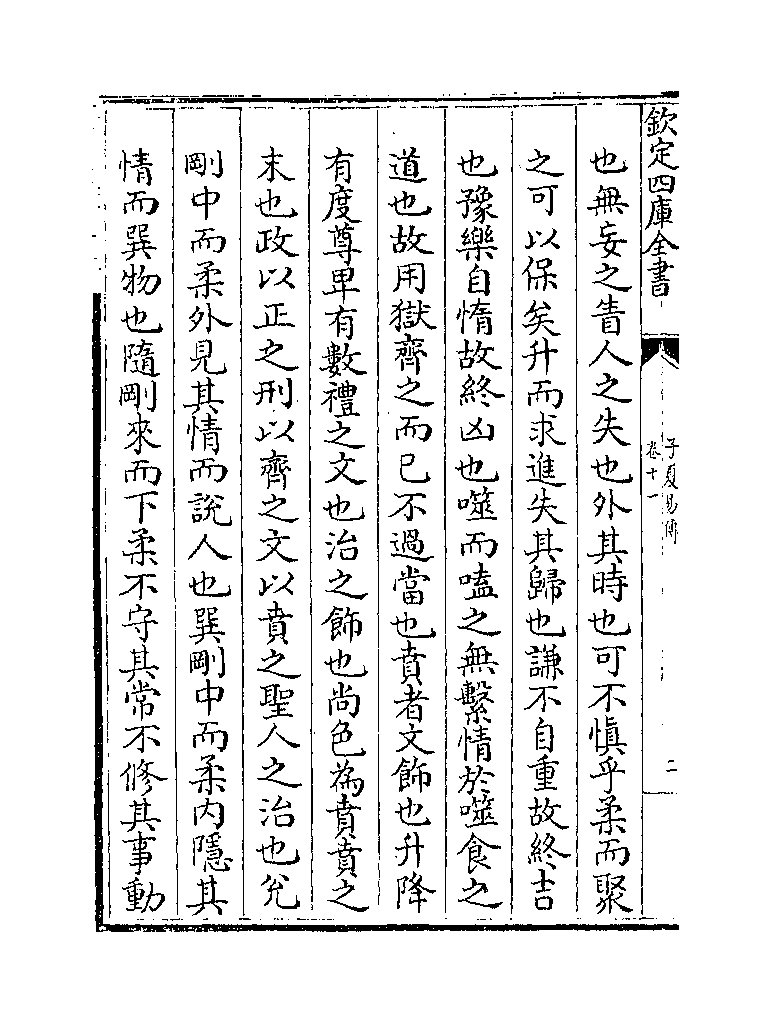 欽定四庫全書
子夏易傳
卷十一
二
也無妄之眚人之失也外其時也可不慎乎柔而聚
之可以保矣升而求進失其歸也謙不自重故終吉
也豫樂自惰故終凶也噬而嗑之無繫情於噬食之
道也故用獄齊之而已不過當也賁者文飾也升降
有度尊卑有數禮之文也治之飾也尚色為賁賁之
末也政以正之刑以齊之文以賁之聖人之治也兊
剛中而柔外見其情而說人也巽剛中而柔内隱其
情而巽物也隨剛來而下柔不守其常不修其事動